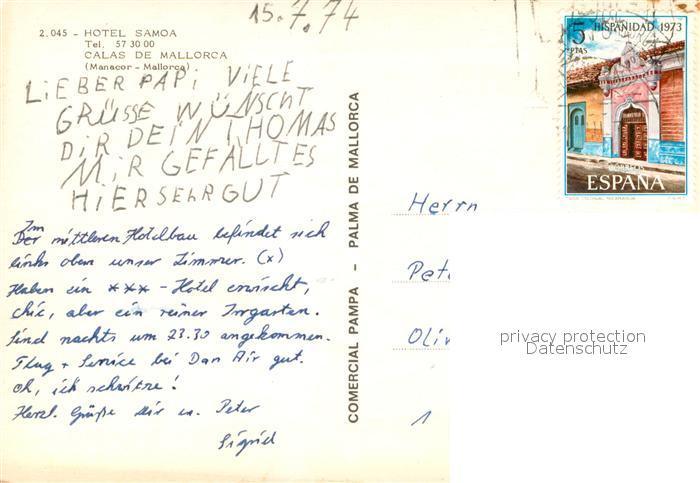 15.7.74
2.045 - HOTEL SAMOA
Tel. 57 30 00
CALAS DE MALLORCA
(Manacor - Mallorca)
LiEBER PAPi ViELE
GRÜSSE WÜNSCHT
DiR DEIN THOMAS
MiR GEFÄLLT ES
HiER SEHR GUT
Im
Der mittleren Hotelbau befindet sich
links oben unser Zimmer. (x)
Haben ein *** - Hotel erwischt,
chic, aber ein reiner Irrgarten.
Sind nachts um 23.30 angekommen.
Flug + Service bei Dan Air gut.
Oh, ich schwitze!
Herzl. Grüße Dir u. Peter
Sigrid
COMERCIAL PAMPA - PALMA DE MALLORCA
HISPANIDAD 1973
5
PTAS
CORREOS
ESPAÑA
Herrn
Pet
Oliv
1
privacy protection
Datenschutz